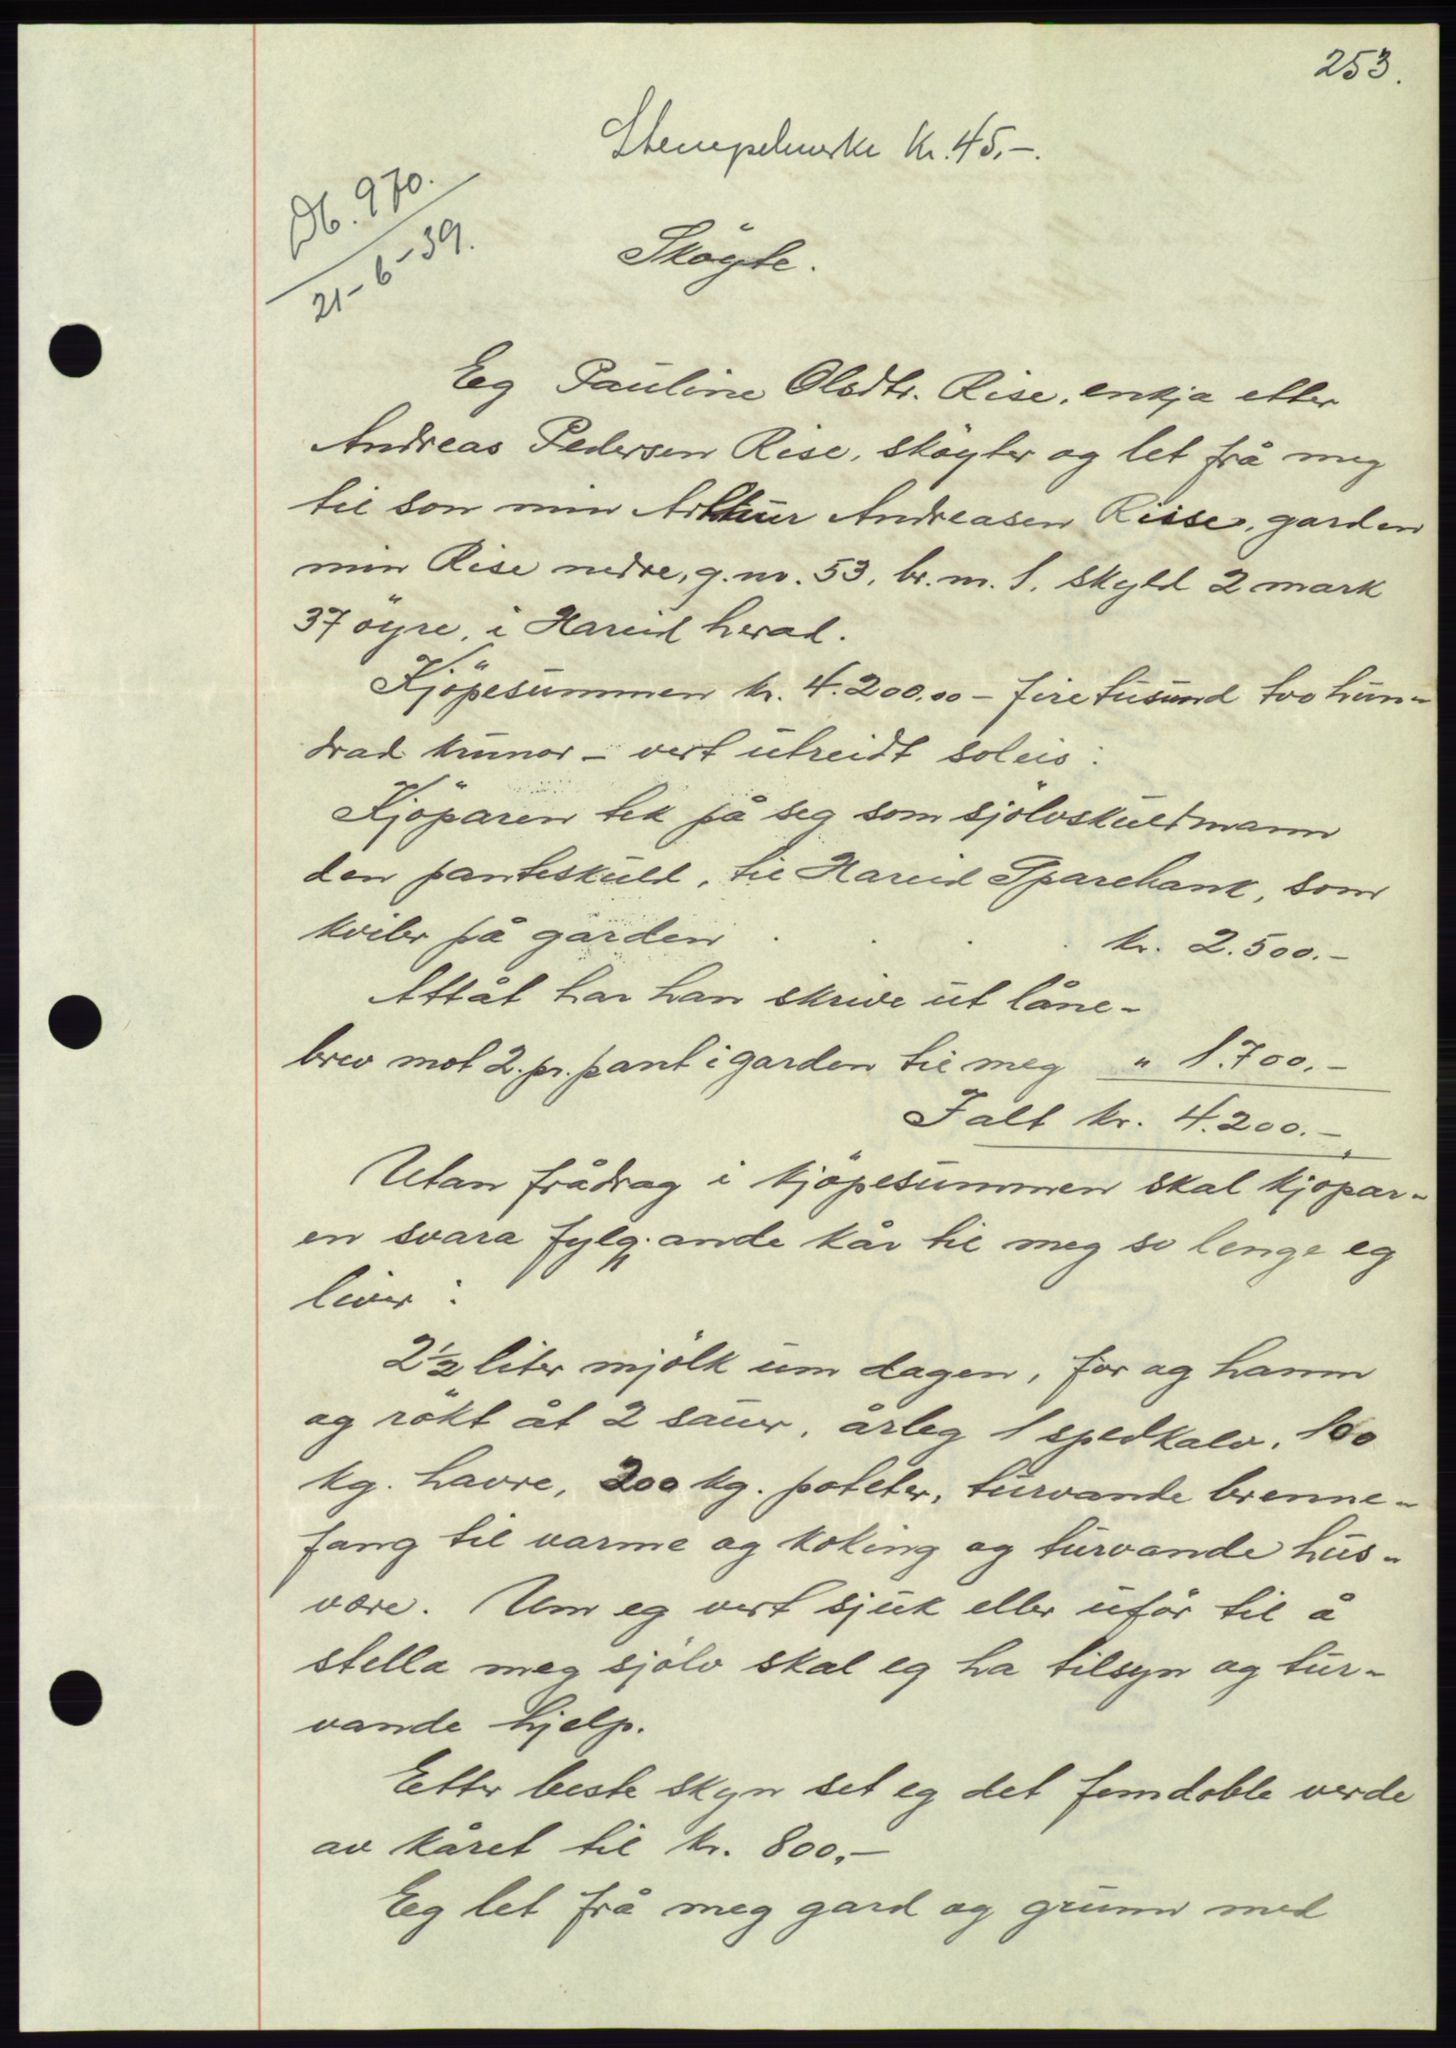 253.
Stempelmerke kr. 45,-.
Db. 970.
21-6-39.
Sköyte.
Eg Pauline Olsdtr. Rise, enkja etter
Andreas Pedersen Rise, sköyter og let frå meg
til son min Arthur Andreasen Risse, garden
min Rise nedre, g.nr. 53, br.nr. 1, skyld 2 mark
37 öyre, i Hareid herad.
Kjöpesummen kr. 4.200.00 - firetusund tvo hun-
drad krunor - vert utreidt soleis:
Kjöparen tek på seg som sjölvskuldmann
den panteskuld, til Hareid Sparebank, som
kviler på garden . . . . kr. 2.500.-
Attåt har han skrive ut låne-
brev mot 2. pr. pant i garden til meg " 1.700.-
I alt kr. 4.200.-
Utan frådrag i kjöpesummen skal kjöpar-
en svara fylgjande kår til meg so lenge eg
liver:
2½ liter mjölk um dagen, for og hamn
og rökt åt 2 sauer, årleg 1 spedkalv, 100
kg. havre, 200 kg. poteter, turvande brenne-
fang til varme og koking og turvande hus-
være. Um eg vert sjuk eller ufør til å
stella meg sjölv skal eg ha tilsyn og tur-
vande hjelp.
Etter beste skyn set eg det femdoble verde
av kåret til kr. 800,-
Eg let frå meg gard og grunn med